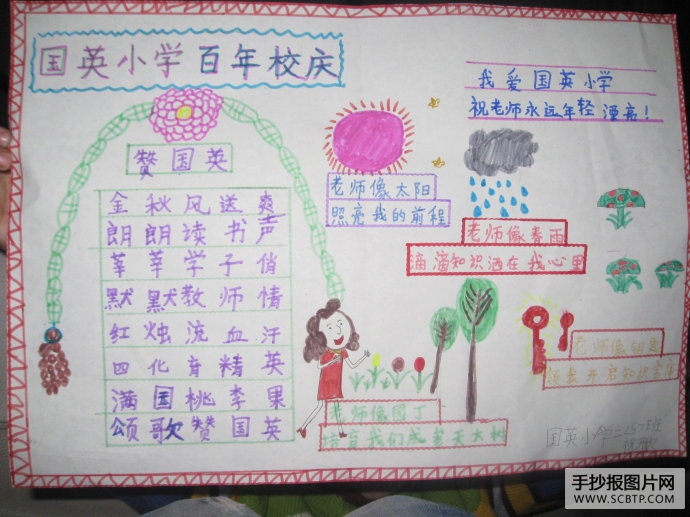 国英小学百年校庆
我爱国英小学
祝老师永远年轻漂亮！
赞国英
金秋风送爽
朗朗读书声
莘莘学子俏
默默教师情
红烛流血汗
四化育精英
满国桃李果
颂歌赞国英
老师像太阳
照亮我的前程
老师像春雨
滴滴知识洒在我心里
老师像钥匙
领我开启知识宝库
老师像园丁
培育我们成参天大树
国英小学二(5)班
手抄报图片网
WWW.SCBTP.COM